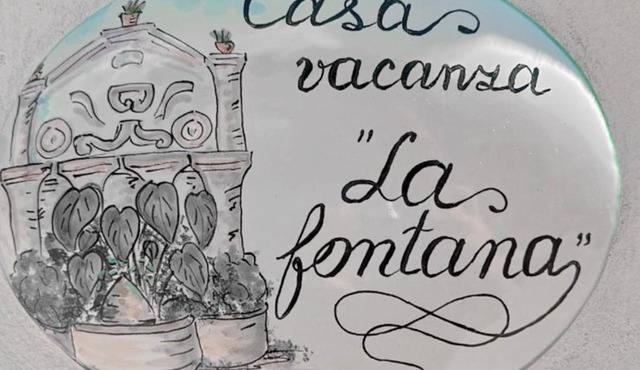 Casa
vacanza
"La
fontana"